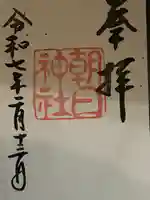 奉拝
朝日
神社
令和七年二月十二日